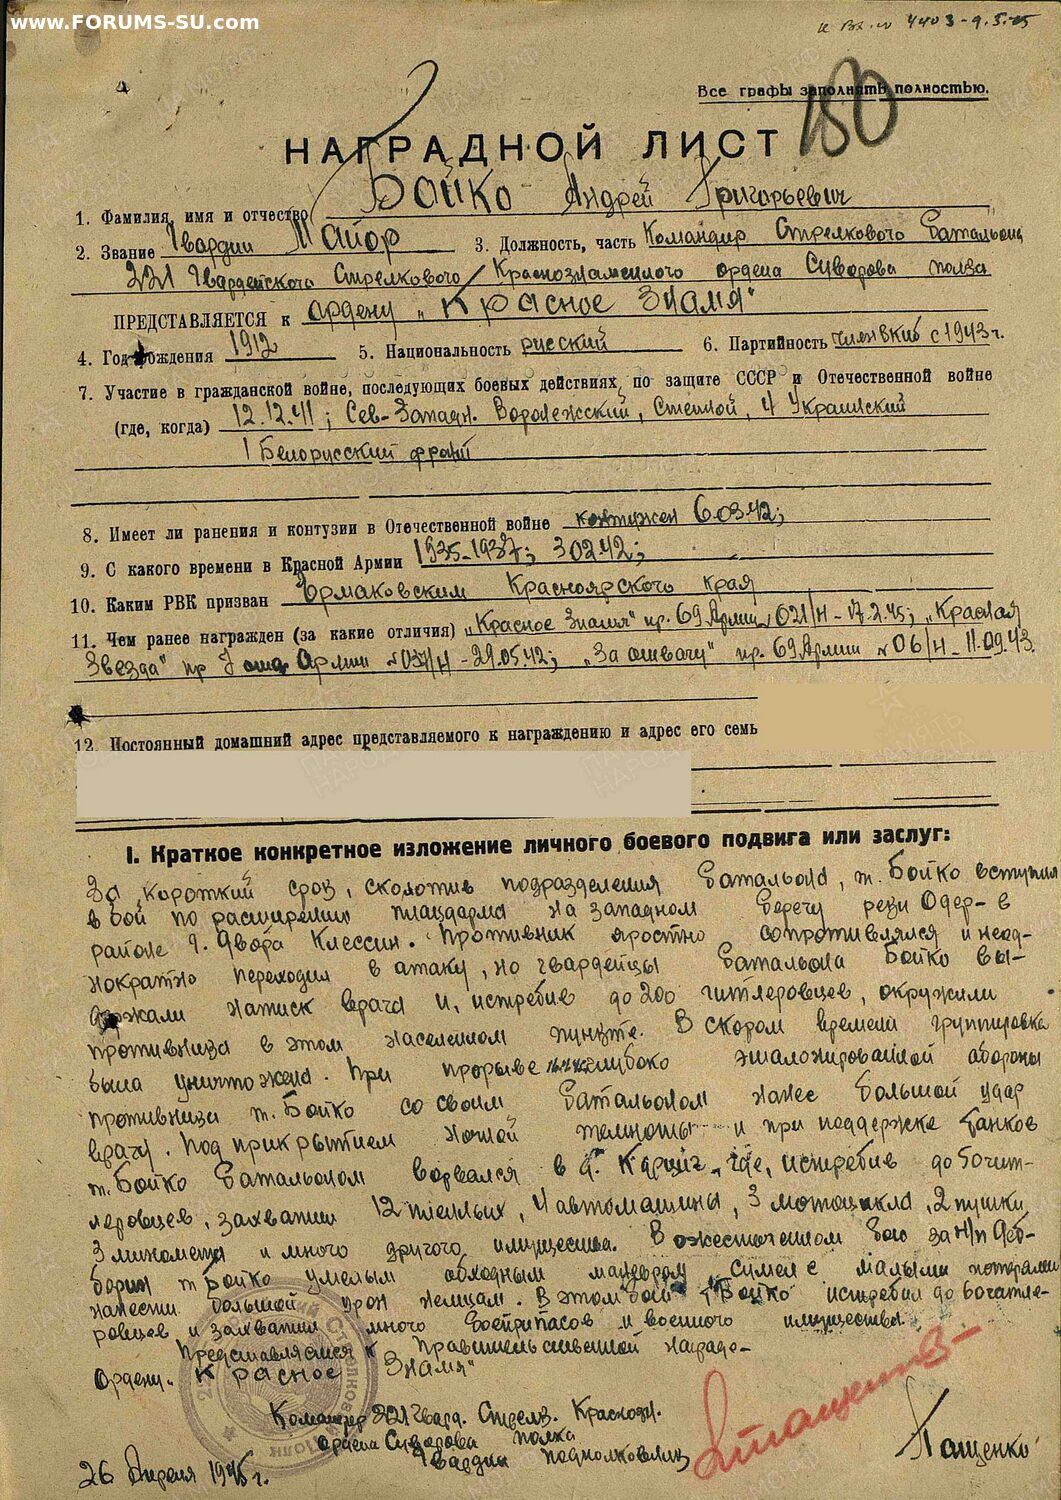 www.FORUMS-SU.com
4403-9.5.45
Все графы заполнять полностью.
180
НАГРАДНОЙ ЛИСТ
1. Фамилия, имя и отчество Бойко Андрей Григорьевич
2. Звание Гвардии Майор 3. Должность, часть Командир Стрелкового Батальона
221 Гвардейского Стрелкового Краснознаменного ордена Суворова полка
ПРЕДСТАВЛЯЕТСЯ к ордену „Красное Знамя"
4. Год рождения 1912 5. Национальность русский 6. Партийность член ВКПб с 1943 г.
7. Участие в гражданской войне, последующих боевых действиях, по защите СССР и Отечественной войне
(где, когда) 12.12.41; Сев-Западн. Воронежский, Степной, 4 Украинский
1 Белорусский фронт
8. Имеет ли ранения и контузии в Отечественной войне контужен 6.03.42;
9. С какого времени в Красной Армии 1935-1937; 3.02.42;
10. Каким РВК призван Ермаковским Красноярского края
11. Чем ранее награжден (за какие отличия) „Красное Знамя" пр. 69 Армии № 021/н - 17.2.45; „Красная
Звезда" пр Армии - 29.05.42; „За отвагу" пр. 69 Армии № 06/н - 11.09.43.
12. Постоянный домашний адрес представляемого к награждению и адрес его семь
I. Краткое конкретное изложение личного боевого подвига или заслуг:
За короткий срок, сколотив подразделения батальона, т. Бойко вступил
в бой по расширению плацдарма на западном берегу реки Одер - в
районе г. двора Клессин. Противник яростно сопротивлялся и неод-
нократно переходил в атаку, но гвардейцы батальона Бойко вы-
держали натиск врага и, истребив до 200 гитлеровцев, окружили
противника в этом населенном пункте. В скором времени группировка
была уничтожена. При прорыве глубоко эшалонированной обороны
противника т. Бойко со своим батальоном нанес большой удар
врагу. Под прикрытием ночной темноты и при поддержке танков
т. Бойко батальоном ворвался в д. где, истребив до 50 гит-
леровцев, захватил 12 пленных, 4 автомашины, 3 мотоцикла, 2 пушки
3 миномета и много другого имущества. В ожесточенном бою за н/п Деб-
берин т. Бойко умелым обходным маневром сумел с малыми потерями
нанести большой урон немцам. В этом бою т. Бойко истребил до 60 гитле-
ровцев и захватил много боеприпасов и военного имущества.
Представляется к Правительственной награде-
Ордену „Красное Знамя"
Командир 221 Гвард. Стрелк. Краснозн.
ордена Суворова полка
Гвардии подполковник Пащенко
26 Апреля 1945 г.